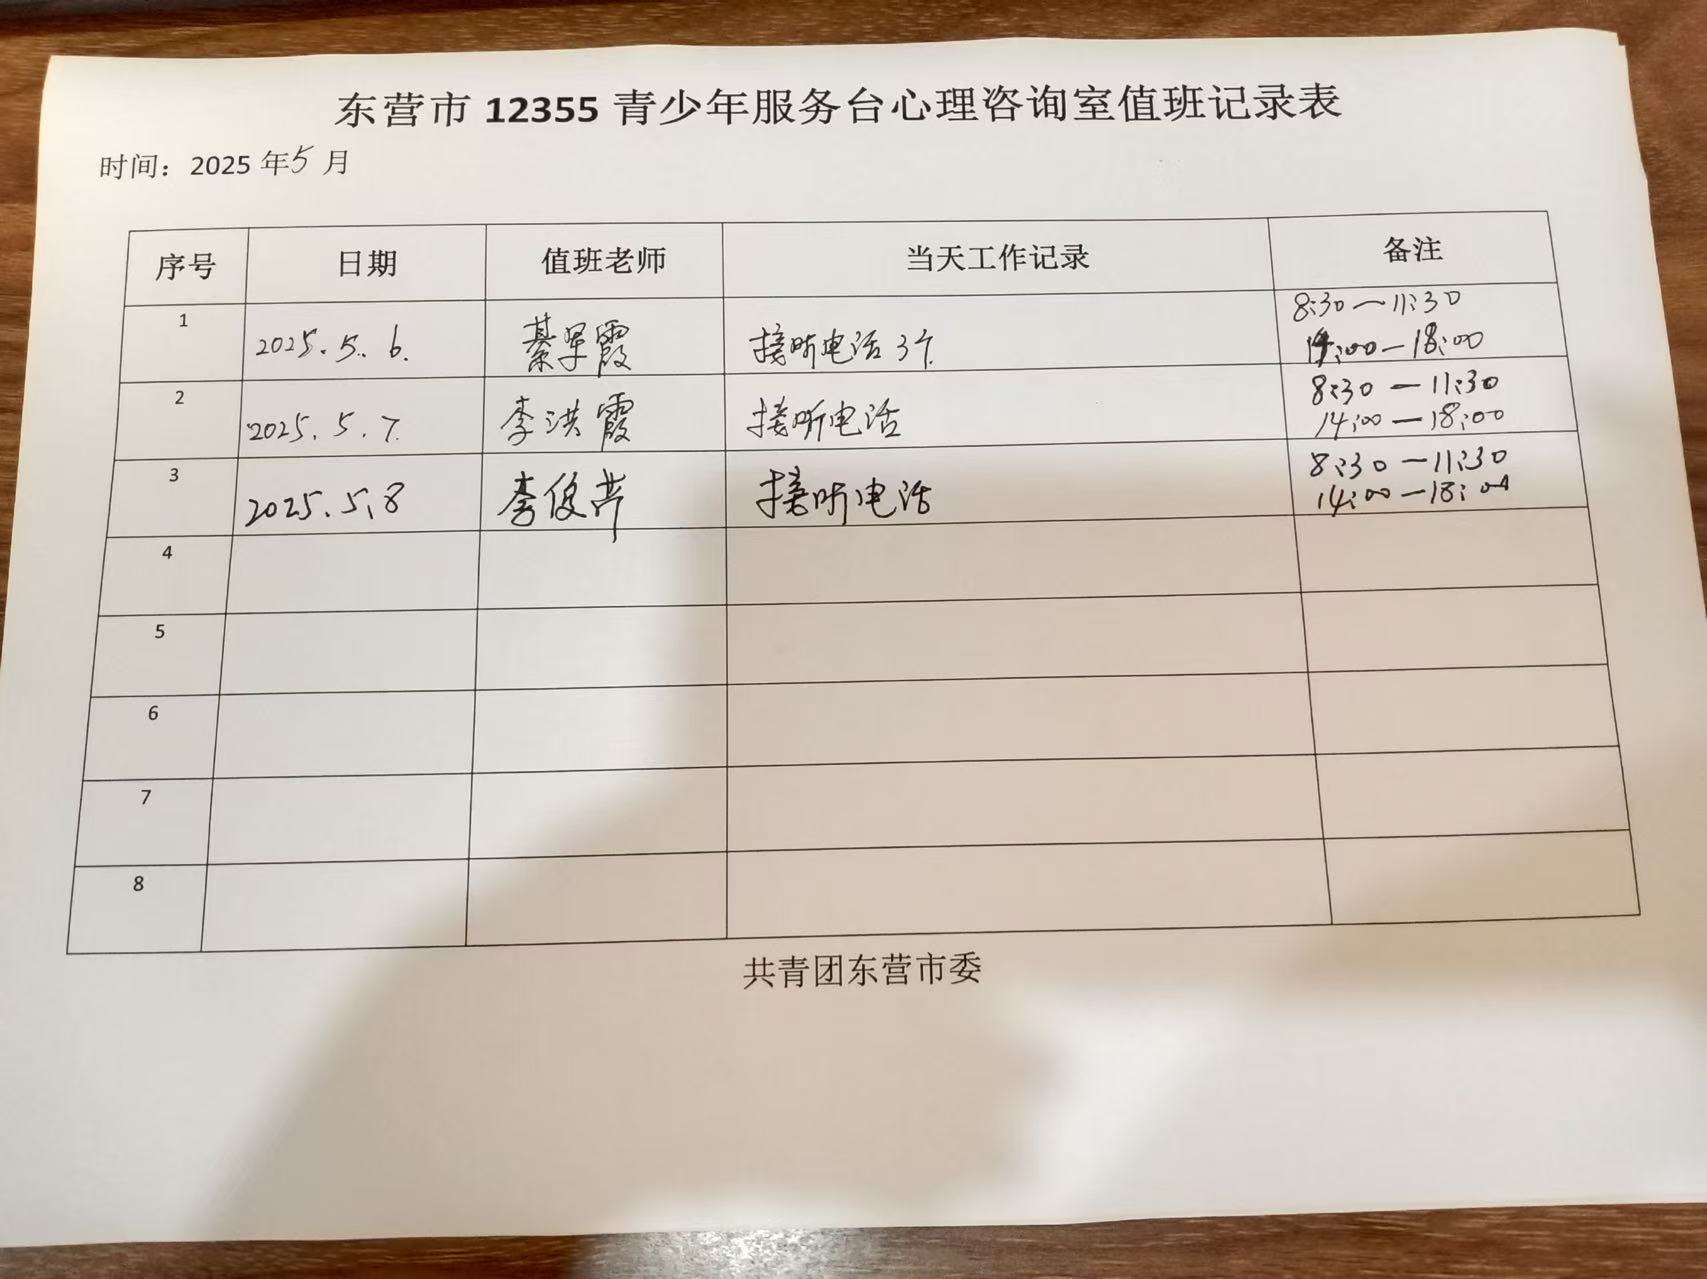 东营市 12355 青少年服务台心理咨询室值班记录表
时间：2025 年 5 月
序号 日期 值班老师 当天工作记录 备注
1 2025.5.6. 綦翠霞 接听电话3个. 8:30—11:30
14:00—18:00
2 2025.5.7. 李洪霞 接听电话 8:30—11:30
14:00—18:00
3 2025.5.8 李俊芳 接听电话 8:30—11:30
14:00—18:00
4
5
6
7
8
共青团东营市委